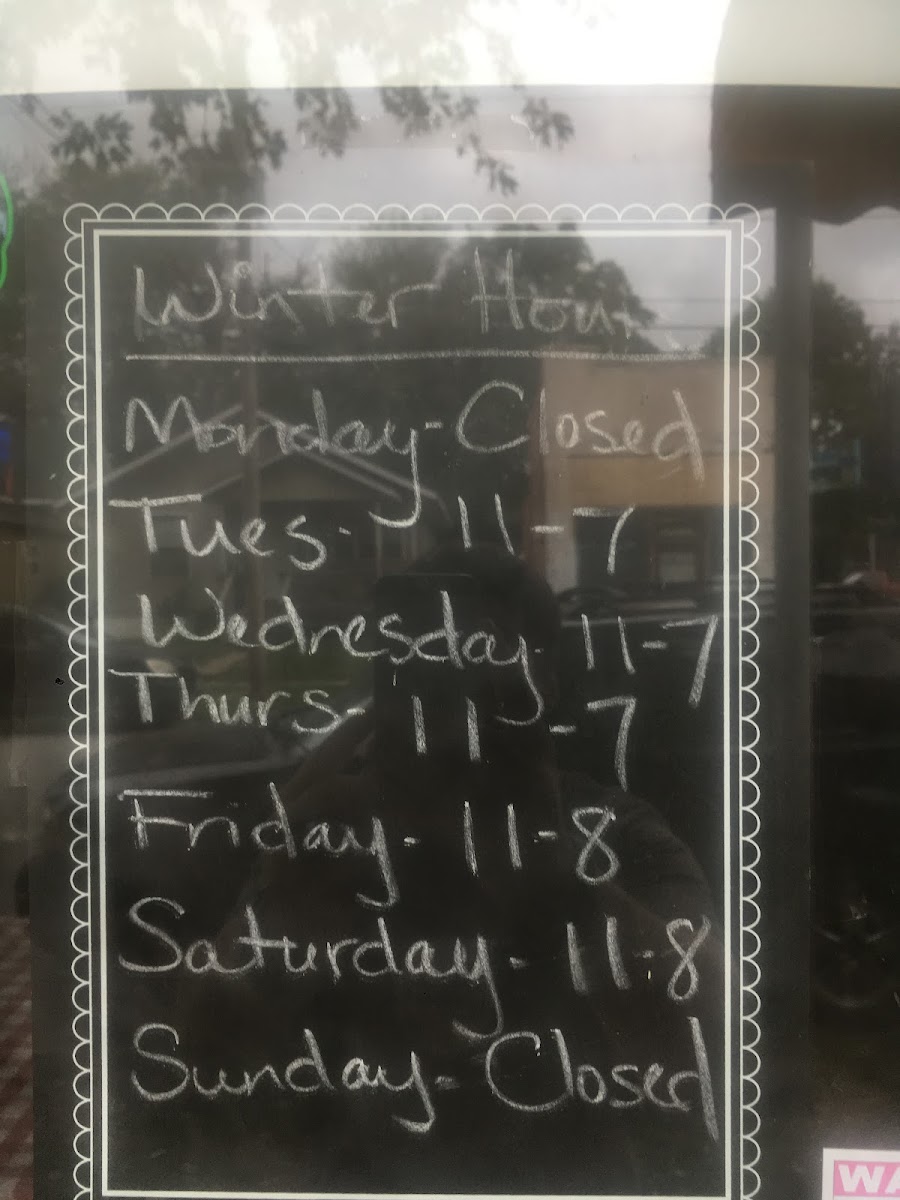 Winter Hour
Monday-Closed
Tues- 11-7
Wednesday- 11-7
Thurs- 11-7
Friday- 11-8
Saturday- 11-8
Sunday- Closed
WA